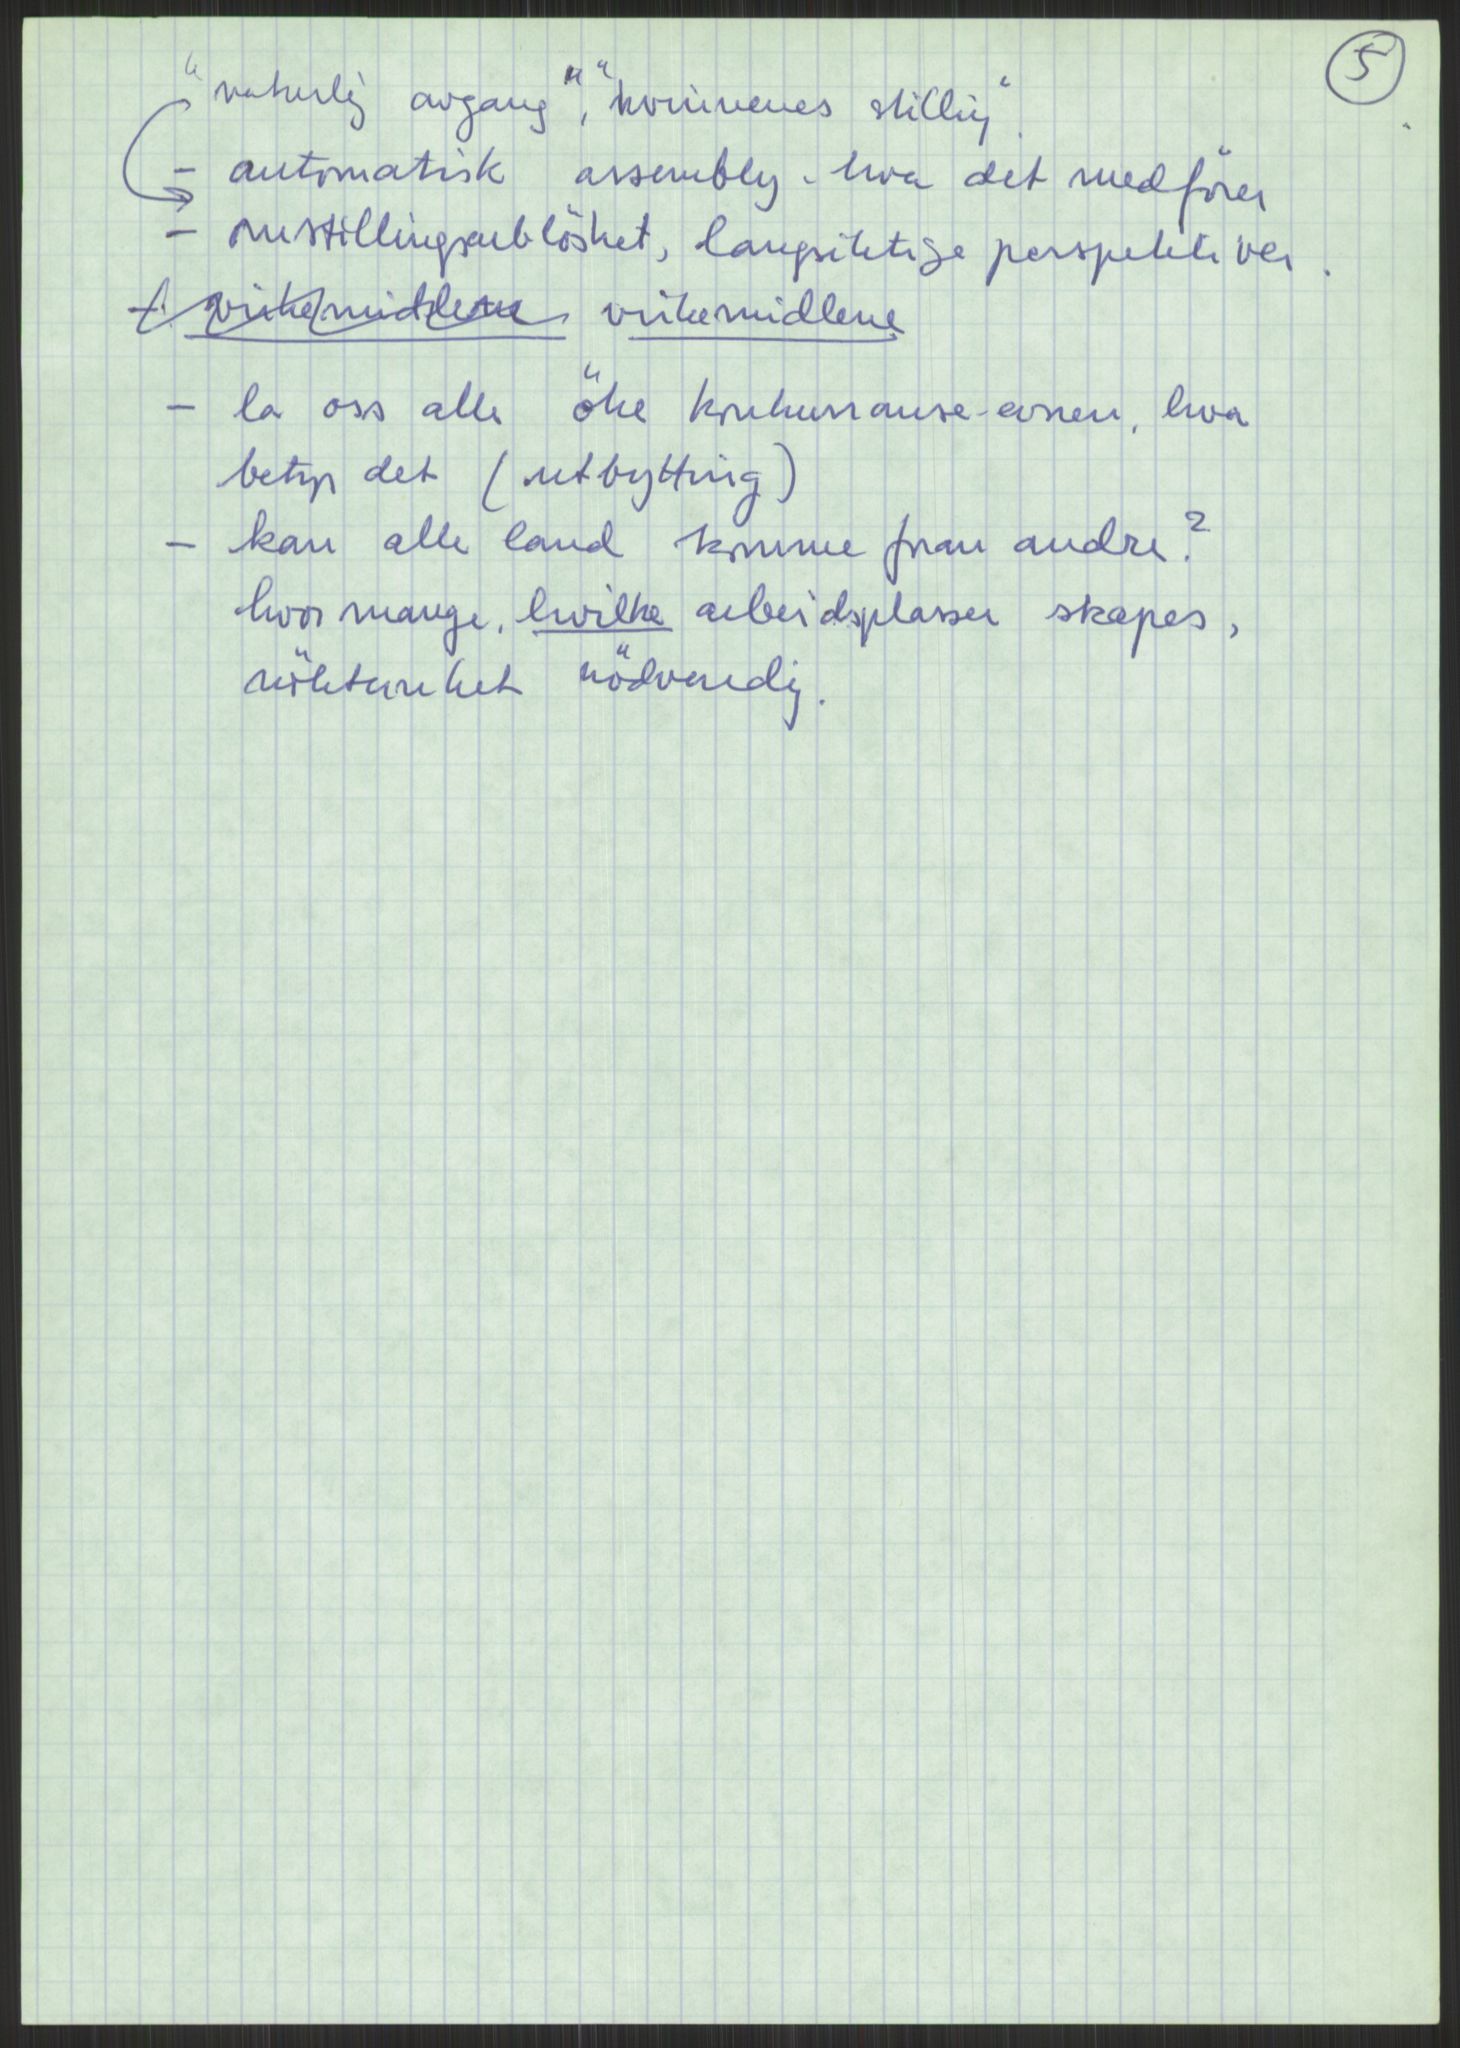 5
"naturlig avgang", "kvinnenes stilling".
- automatisk assembly - hva det medförer
- omstillingsarblöshet, langsiktige perspektiver.
virkemidlene virkemidlene
- la oss alle öke konkurranse-evnen, hva
betyr det (utbytting)
- kan alle land komme foran andre?
hvor mange, hvilke arbeidsplasser skapes,
nökternhet nödvendig.